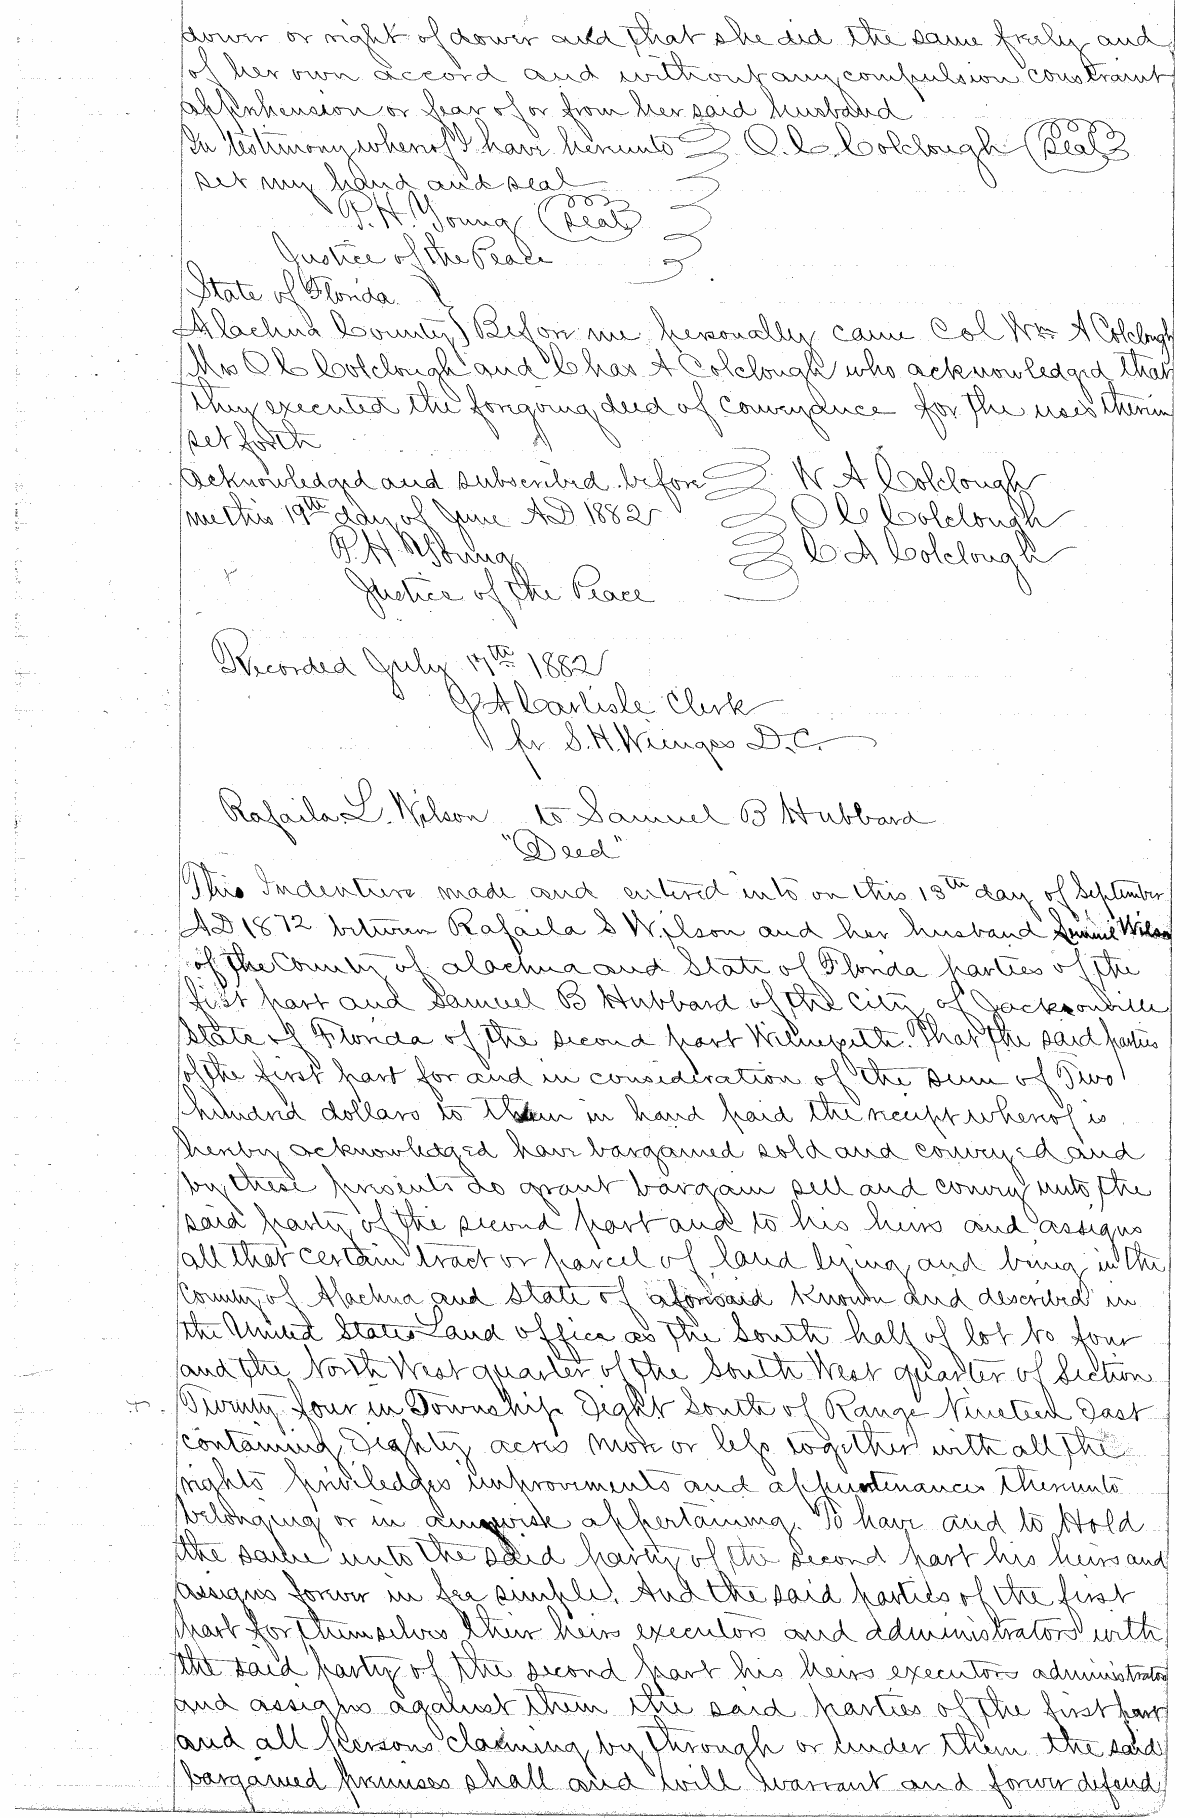 dower or right of dower and that she did the same freely and
of her own accord and without any compulsion constraint
apprehension or fear of or from her said husband
In testimony whereof I have hereunto O. C. Colclough (Seal)
set my hand and seal
P. H. Young (Seal)
Justice of the Peace
State of Florida
Alachua County) Before me personally came Col Wm A Colclough
Mrs O C Colclough and Chas A Colclough who acknowledged that
they executed the foregoing deed of conveyance for the uses therein
set forth
Acknowledged and subscribed before W A Colclough
me this 19th day of June AD 1882 O C Colclough
P. H. Young C A Colclough
Justice of the Peace
Recorded July 17th 1882
J A Carlisle Clerk
pr S. H. Wienges D. C.
Rafaila L. Wilson to Samuel B Hubbard
"Deed"
This Indenture made and entered into on this 13th day of September
AD 1872 between Rafaila S Wilson and her husband Wilson
of the County of Alachua and State of Florida parties of the
first part and Samuel B Hubbard of the City of Jacksonville
State of Florida of the second part Witnesseth. That the said parties
of the first part for and in consideration of the sum of Two
hundred dollars to them in hand paid the receipt whereof is
hereby acknowledged have bargained sold and conveyed and
by these presents do grant bargain sell and convey unto the
said party of the second part and to his heirs and assigns
all that certain tract or parcel of land lying and being in the
County of Alachua and State of aforesaid known and described in
the United States Land office as the South half of lot No four
and the North West quarter of the South West quarter of Section
Twenty four in Township Eight South of Range Nineteen East
containing Eighty acres more or less together with all the
rights priviledges improvements and appurtenances thereunto
belonging or in anywise appertaining. To have and to Hold
the same unto the said party of the second part his heirs and
assigns forever in fee simple. And the said parties of the first
part for themselves their heirs executors and administrators with
the said party of the second part his heirs executors administrators
and assigns against them the said parties of the first part
and all persons claiming by through or under them the said
bargained premises shall and will warrant and forever defend